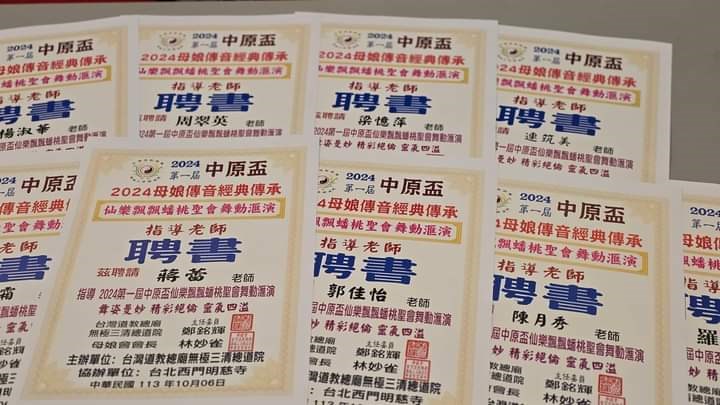 2024 第一屆 中原盃
2024母娘傳音經典傳承
仙樂飄飄蟠桃聖會舞動滙演
指導老師
聘書
楊淑華 老師
2024 第一屆 中原盃
2024母娘傳音經典傳承
仙樂飄飄蟠桃聖會舞動滙演
指導老師
聘書
茲聘請 周翠英 老師
2024第一屆中原盃仙樂飄飄蟠桃聖會舞動滙演
2024 第一屆 中原盃
2024母娘傳音經典傳承
仙樂飄飄蟠桃聖會舞動滙演
指導老師
聘書
茲聘請 梁憶萍 老師
2024第一屆中原盃仙樂飄飄蟠桃聖會舞動滙演
姿曼妙 精彩絕倫 靈氣四溢
2024 第一屆 中原盃
2024母娘傳音經典傳承
仙樂飄飄蟠桃聖會舞動滙演
指導老師
聘書
連筑美 老師
第一屆中原盃仙樂飄飄蟠桃聖會舞動滙演
妙 精彩絕倫 靈氣四溢
2024 第一屆 中原盃
2024母娘傳音經典傳承
仙樂飄飄蟠桃聖會舞動滙演
指導老師
聘書
茲聘請 蔣蕾 老師
指導 2024第一屆中原盃仙樂飄飄蟠桃聖會舞動滙演
舞姿曼妙 精彩絕倫 靈氣四溢
台灣道教總廟 主任委員 鄭銘輝
無極三清總道院
母娘會會長 林妙雀
主辦單位：台灣道教總廟無極三清總道院
協辦單位：台北西門明慈寺
中華民國 113 年10月06日
2024 第一屆 中原盃
2024母娘傳音經典傳承
飄飄蟠桃聖會舞動滙演
指導老師
聘書
郭佳怡 老師
第一屆中原盃仙樂飄飄蟠桃聖會舞動滙演
妙 精彩絕倫 靈氣四溢
主任委員 鄭銘輝
會長 林妙雀
台灣道教總廟無極三清總道院
台北西門明慈寺
113 年10月06日
2024 第一屆 中原盃
母娘傳音經典傳承
飄飄蟠桃聖會舞動滙演
指導老師
聘書
陳月秀 老師
第一屆中原盃仙樂飄飄蟠桃聖會舞動滙演
妙 精彩絕倫 靈氣四溢
鄭銘輝
林妙雀
羅